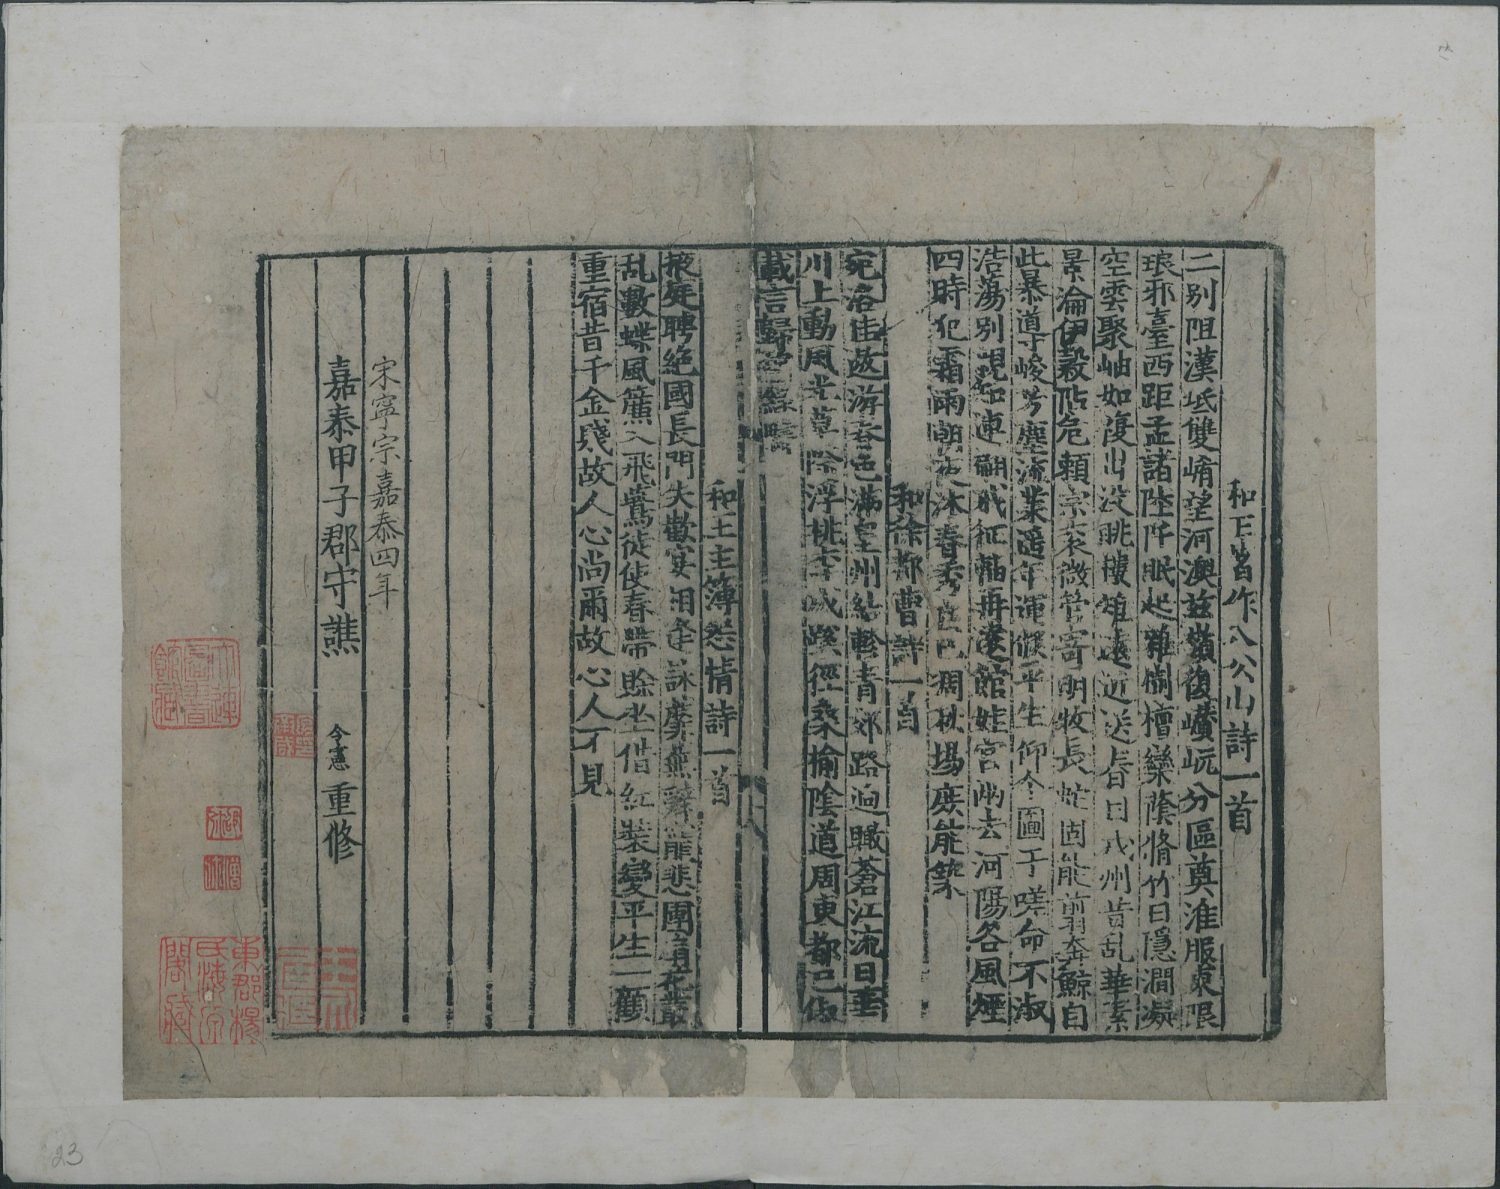 和王著作八公山詩一首
二別阻漢坻雙崤望河澳茲嶺復巑岏分區奠淮服東限
琅邪臺西距孟諸陸阡眠起雜樹檀欒蔭脩竹日隱澗凝
空雲聚岫如復出没眺樓雉遠近送春目戎州昔乱華素
景淪伊穀阽危賴宗袞微管寄明牧長虵固能翦奔鯨自
此暴道峻芳塵流業遥年運倐平生仰令圖于嗟命不淑
浩蕩別親知連翩戒征軸再遠館娃宮兩去河陽谷風煙
四時犯霜雨朝夜沐春秀良已凋秋場庶能築
和徐都曹詩一首
宛洛佳遨游春色滿皇州結軫青郊路迥瞰蒼江流日華
川上動風光草際浮桃李成蹊徑桑榆陰道周東都已俶
載言歸望綠疇
和王主簿怨情詩一首
掖庭聘絶國長門失歡宴相逢詠蘼蕪辭寵悲團扇花叢
乱數蝶風簾入飛鷰徒使春帶賒坐惜紅裝變平生一顧
重宿昔千金賤故人心尚爾故心人不見
宋寧宗嘉泰四年
嘉泰甲子郡守譙 令憲 重修
大連圖書館藏
東郡楊氏海源閣藏
23